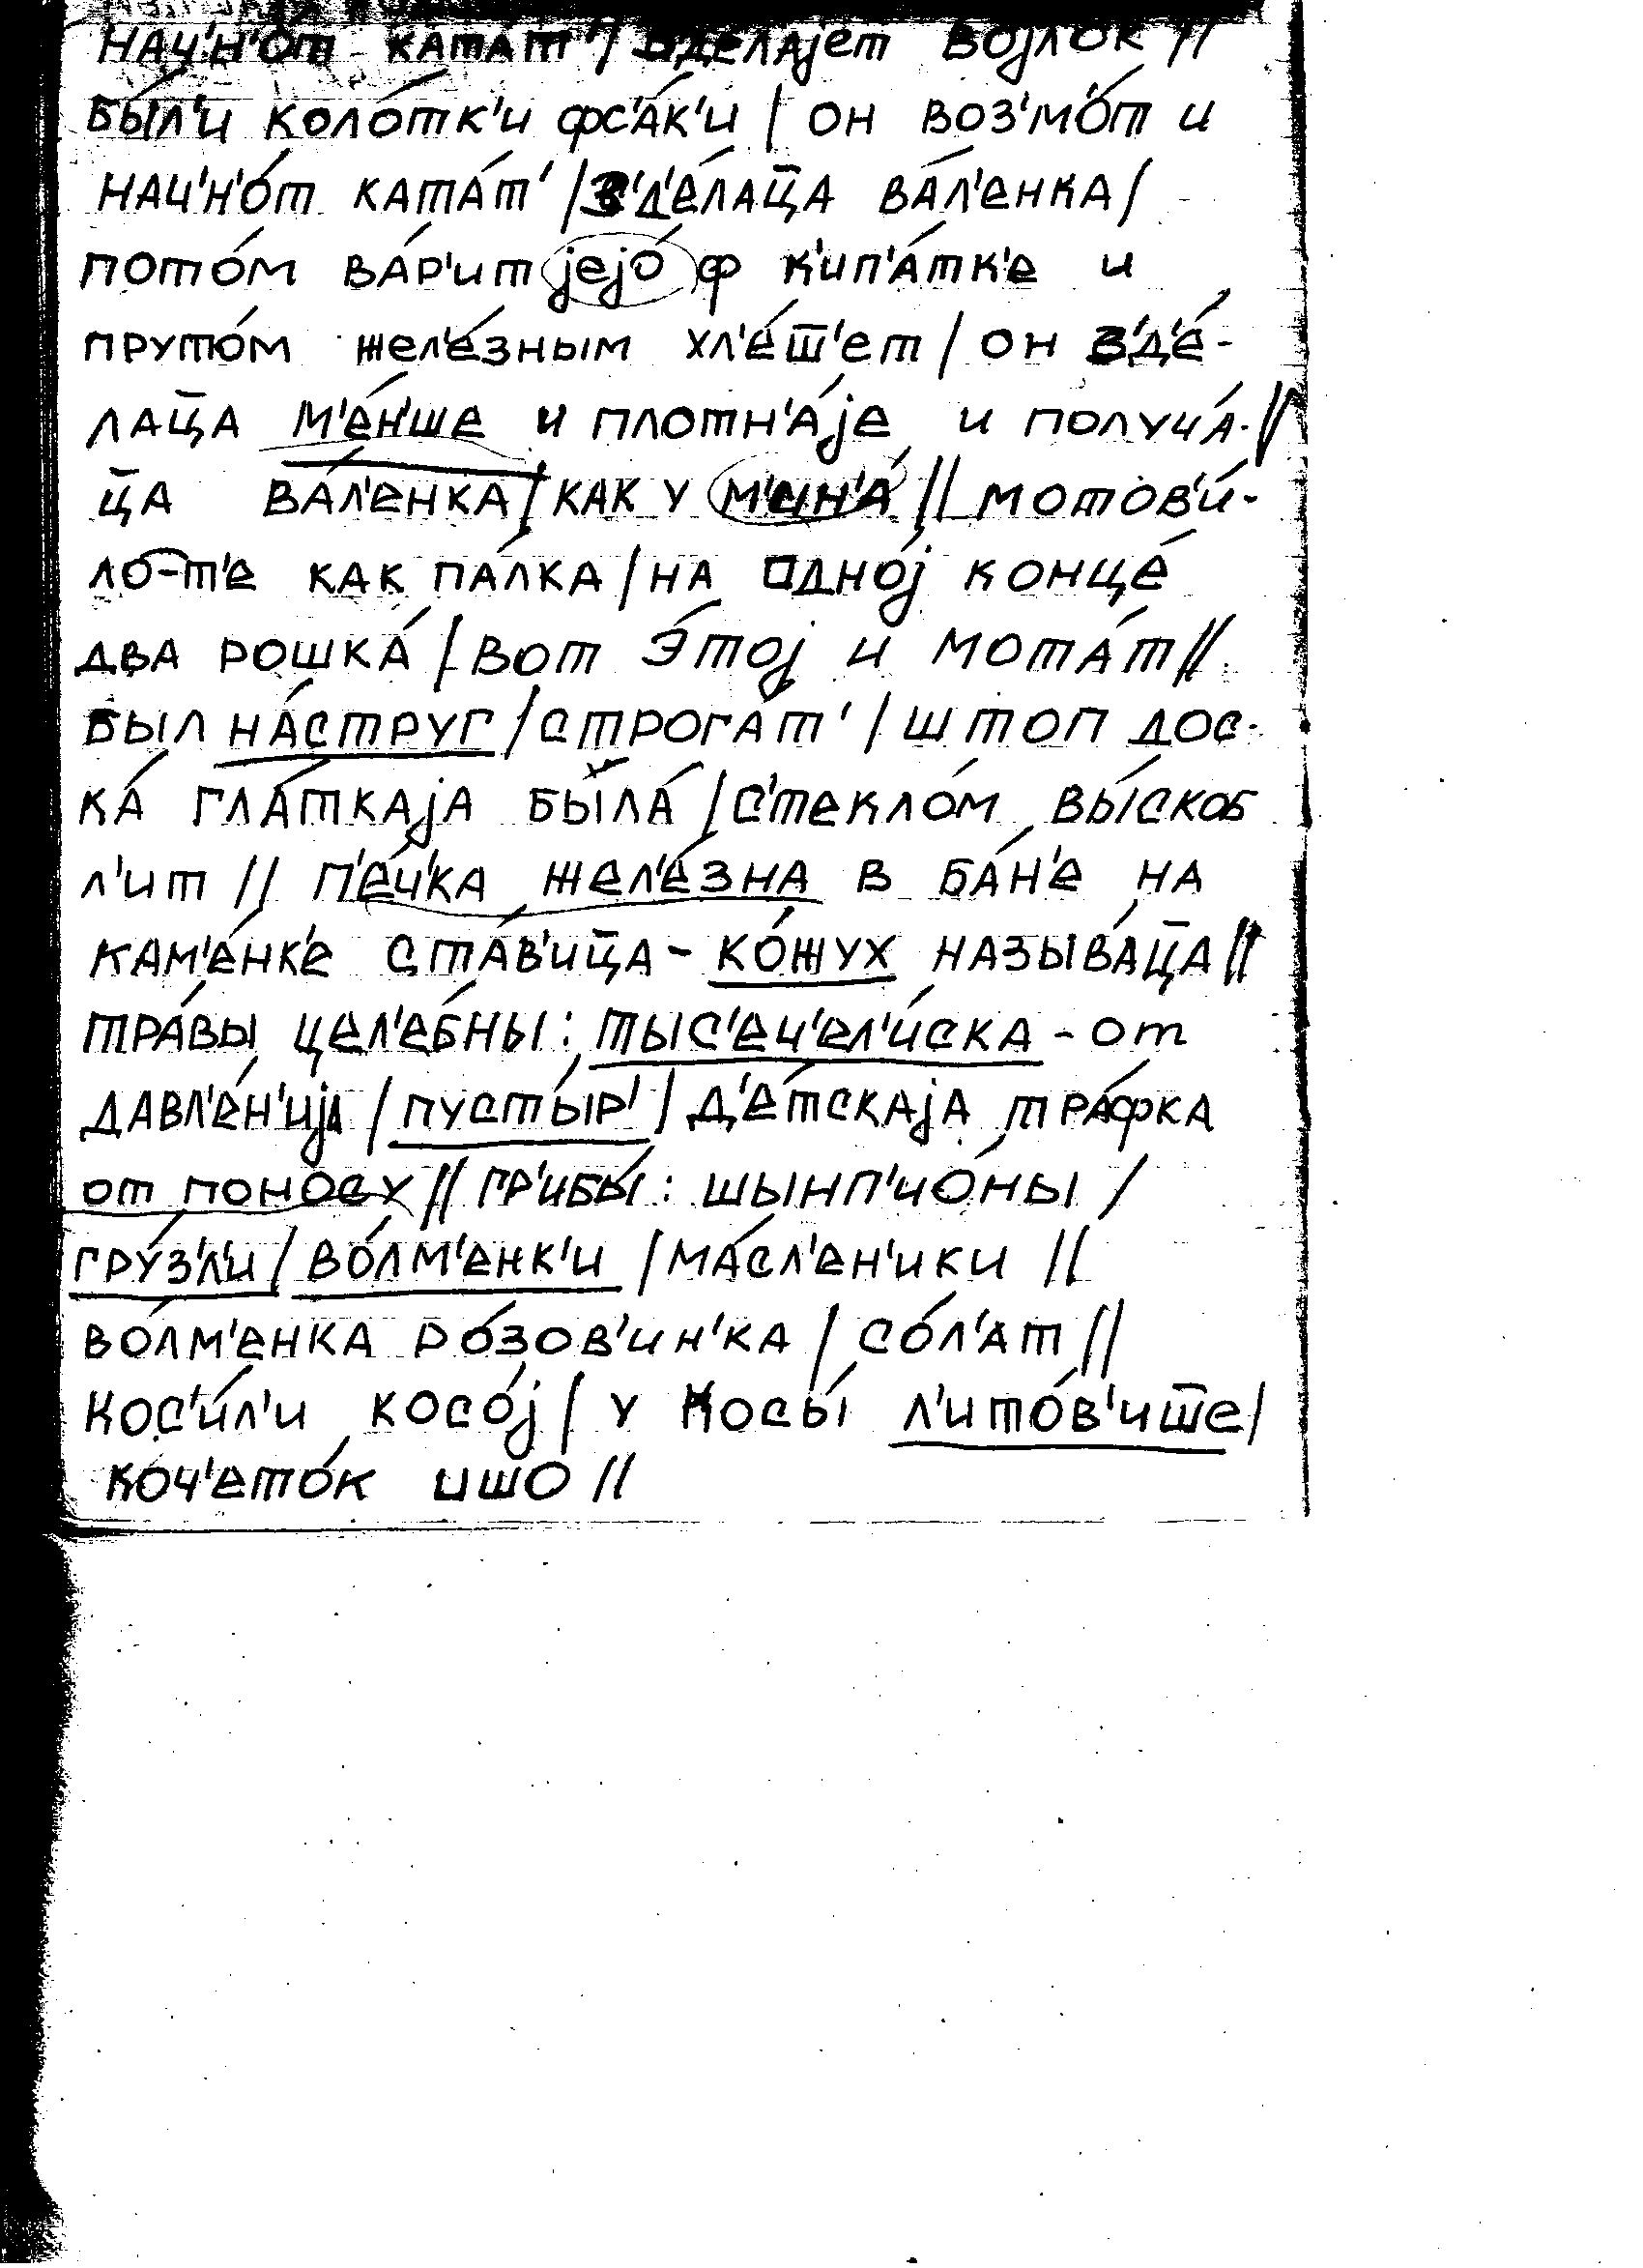 нач'н'о́т ката́т' / зделаjет воjлок //
бы́л'и коло́тк'и фс'а́к'и / он воз'м'о́т и
нач'н'о́т ката́т' / з'д'е́лац̅а ва́л'енка /
пото́м ва́р'ит jеjо́ ф к'ип'а́тк'е и
пруто́м жел'е́зным хл'е́ш̅'ет / он з'д'е́-
лац̅а м'е́н'ше и плотн'а́jе и получа́-//
ц̅а ва́л'енка / как у м'ин'а́ // мотов'и́-
ло-т'е как па́лка / на одно́j конце́
два рошка́ / вот э́тоj и мота́т //
был на́струг / строга́т' / штоп дос-
ка́ гла́ткаjа была́ / с'текло́м вы́скоб
л'ит // п'е́ч'ка жел'е́зна в ба́н'е на
кам'е́нк'е ста́в'иц̅а - ко́жух называ́ц̅а //
тра́вы цел'е́бны : тыс'еч'ел'и́ска - от
давл'е́н'иjа / пусты́р' / д'е́тскаjа тра́фка
от поно́су // гр'ибы́ : шынп'ио́ны /
гру́з'л'и / во́лм'енк'и / ма́сл'ен'ики //
во́лм'енка ро́зов'ин'ка / со́л'ат //
кос'и́л'и косо́j / у косы́ л'ито́в'иш̅е /
коч'ето́к ишо //